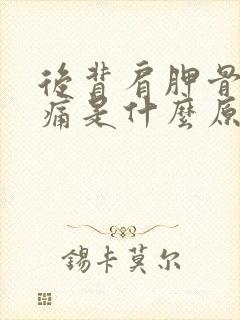 後背肩胛骨
痛是什麼原
錫卡莫尔